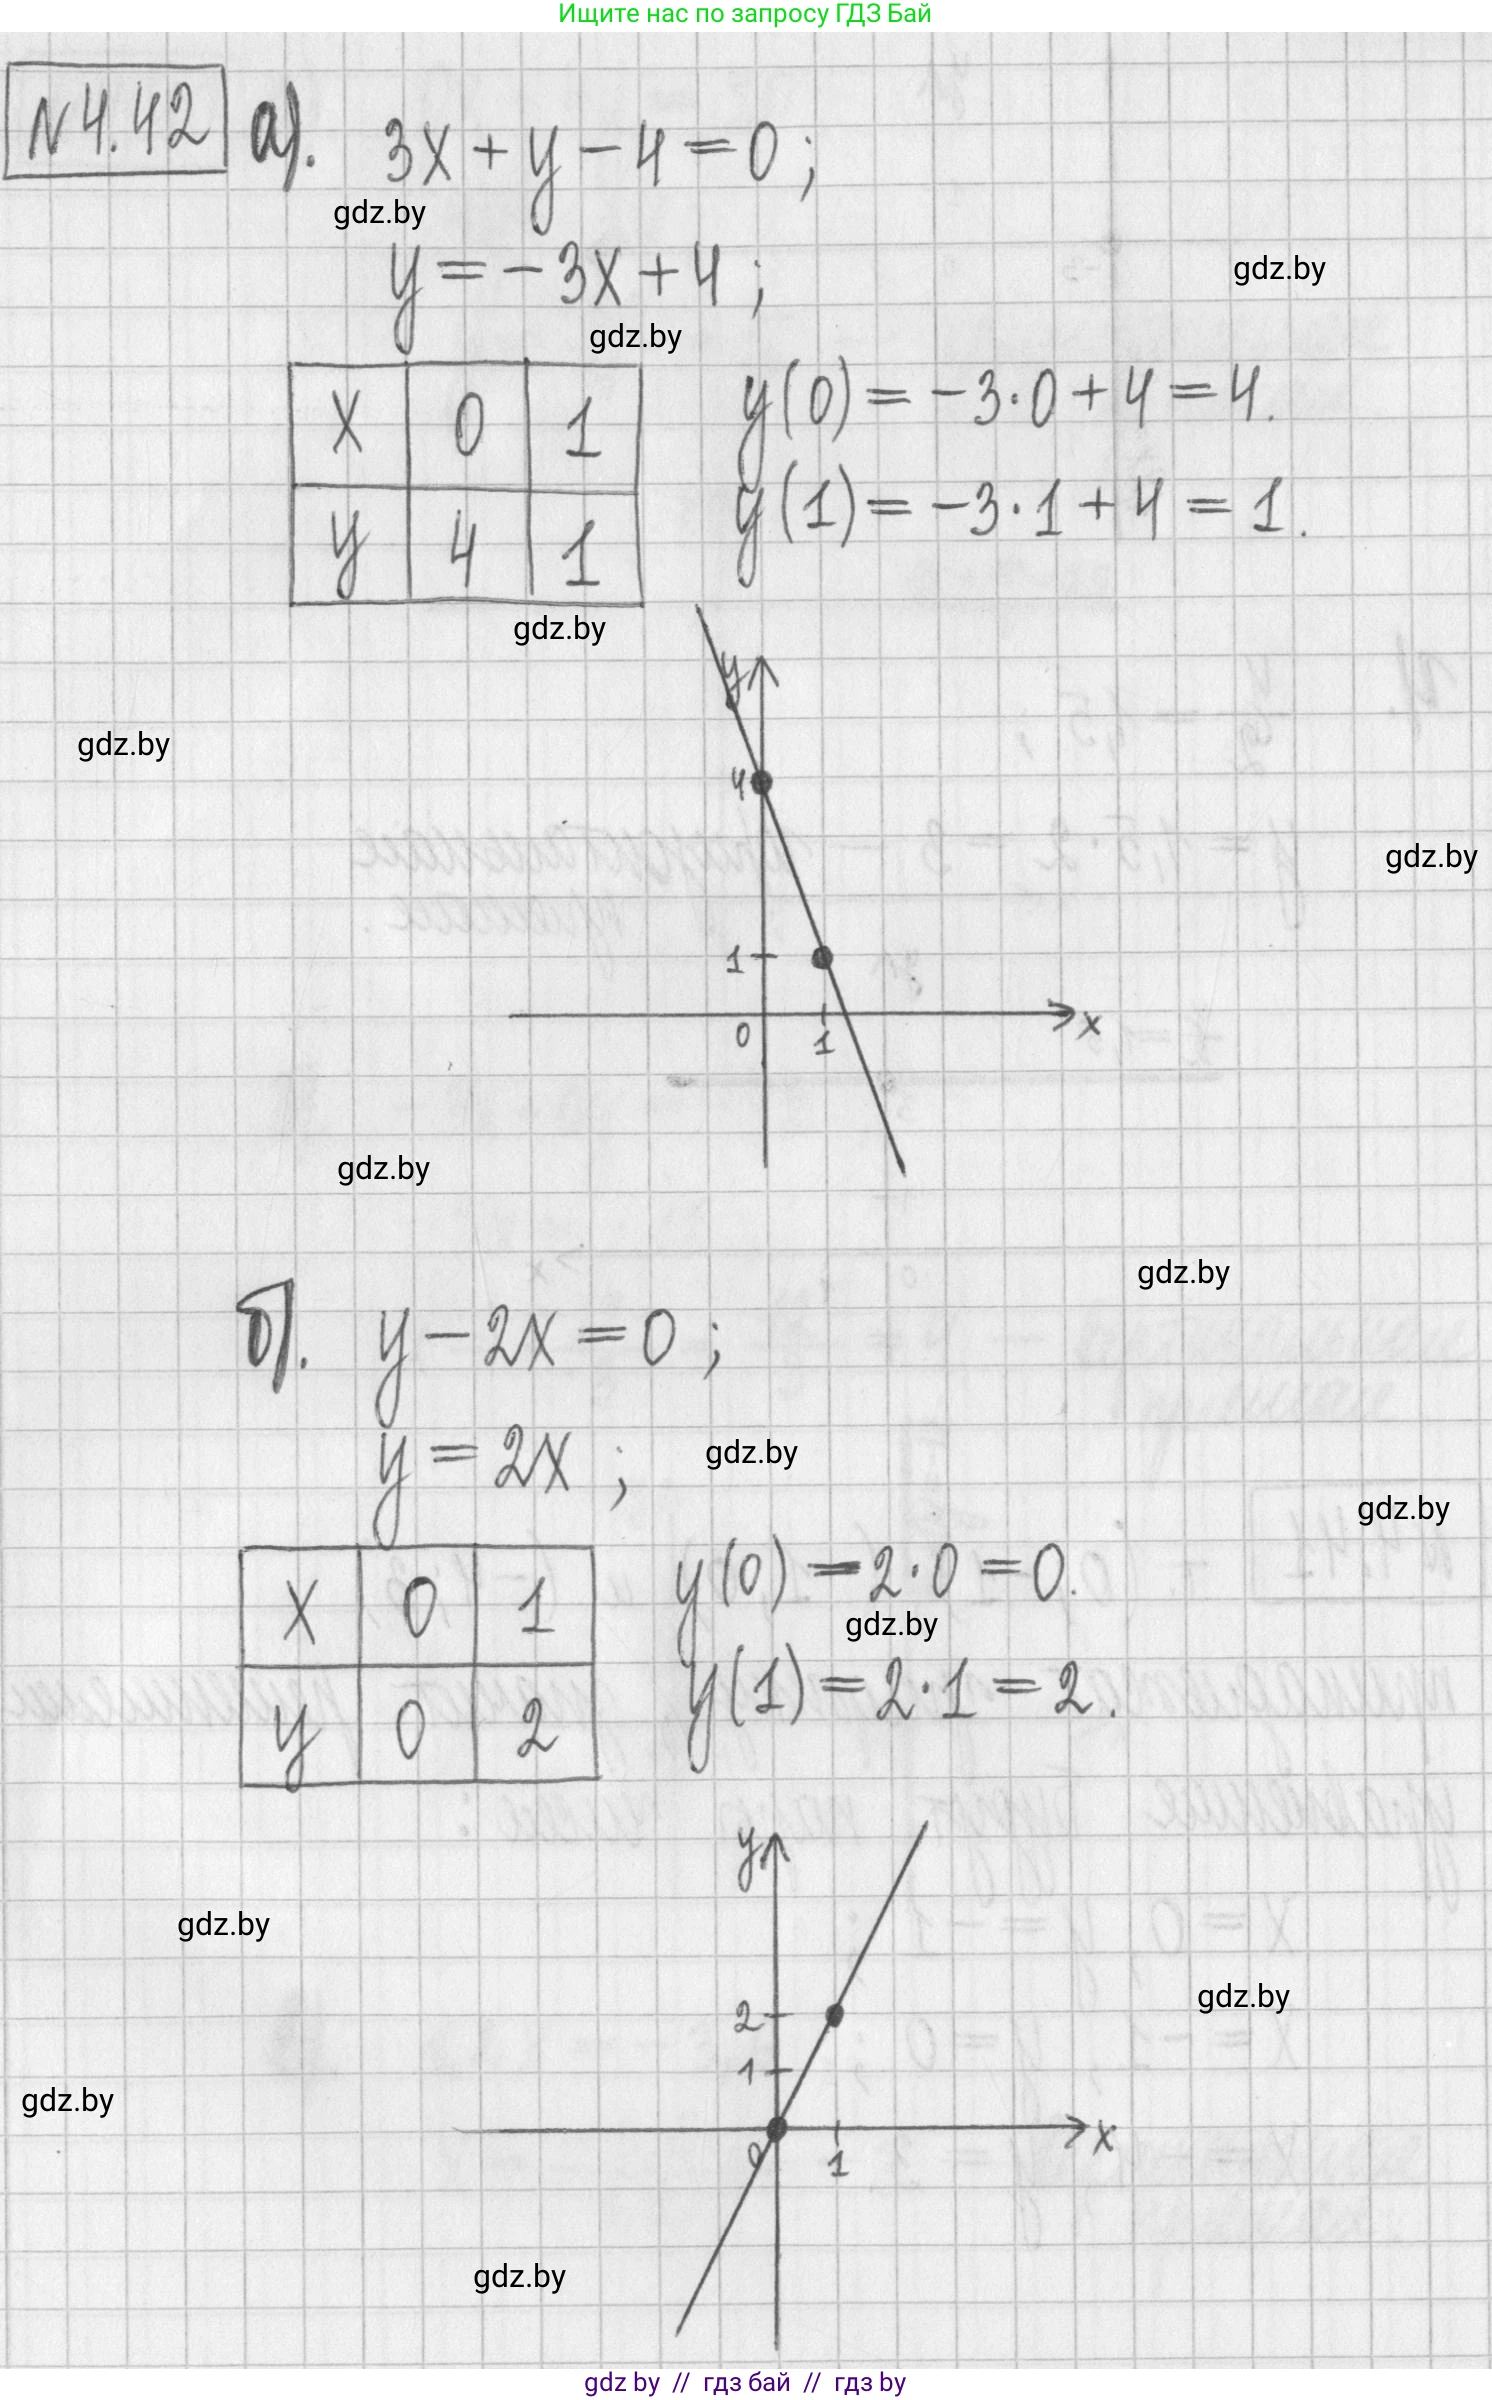 Ищите нас по запросу ГДЗ Бай
N 4.42 а). 3x + y - 4 = 0 ;
gdz.by
y = -3x + 4 ;
gdz.by
gdz.by
x 0 1
y 4 1
y(0) = -3·0 + 4 = 4.
y(1) = -3·1 + 4 = 1.
gdz.by
y
gdz.by
4
gdz.by
1
0 1 x
gdz.by
gdz.by
б). y - 2x = 0 ;
y = 2x ;
gdz.by
gdz.by
x 0 1
y 0 2
y(0) = 2·0 = 0.
gdz.by
y(1) = 2·1 = 2.
y
gdz.by
gdz.by
2
1
gdz.by
0 1 x
gdz.by
gdz by // гдз бай // гдз by